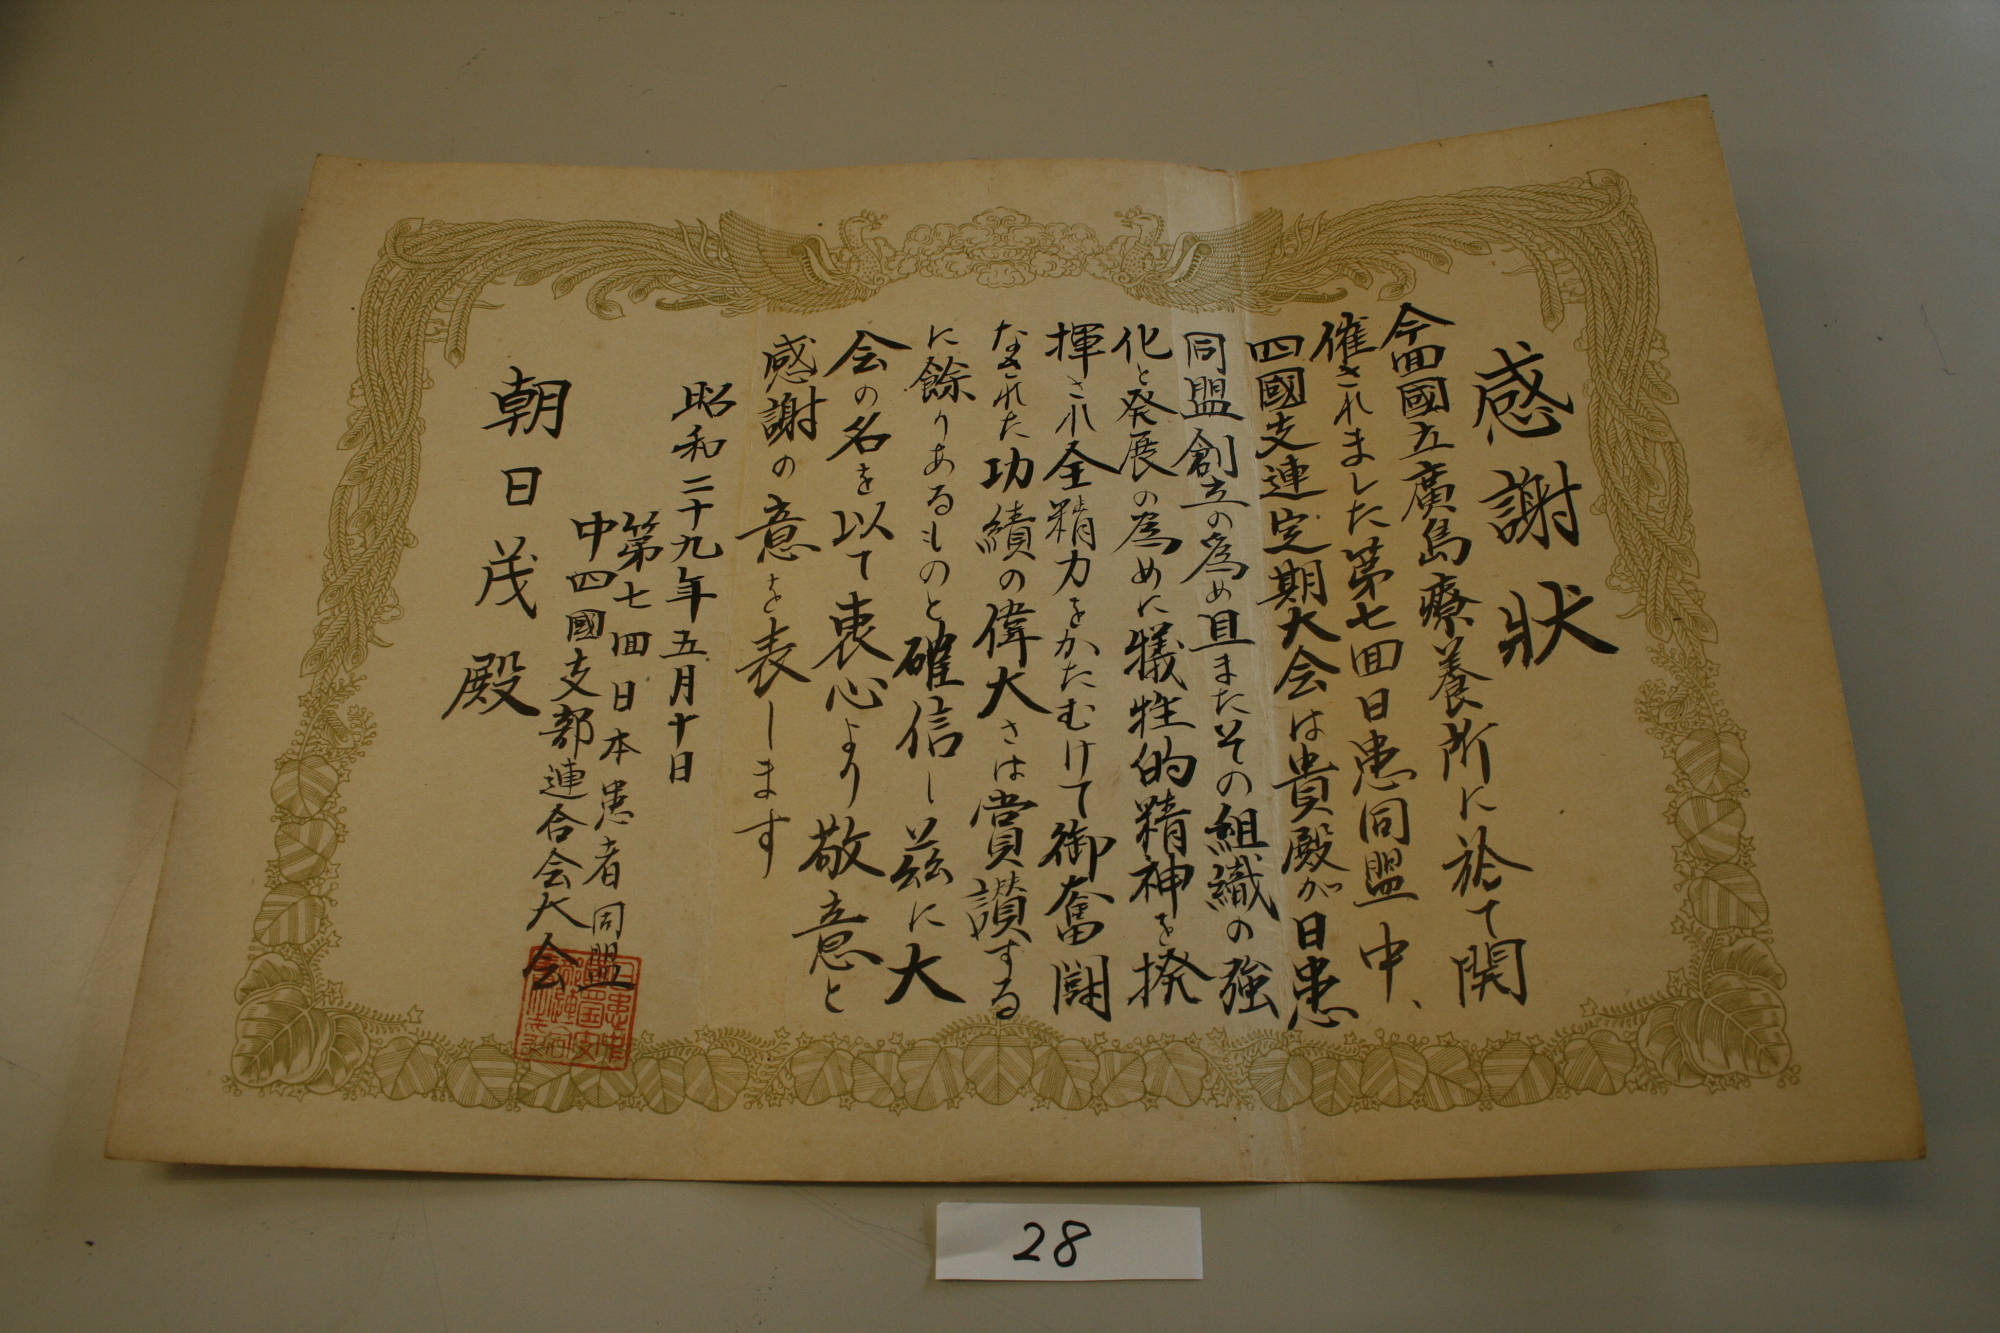 感謝狀
今回國立廣島療養所に於て開
催されました第七回日患同盟中、
四國支連定期大会は貴殿が日患
同盟創立の為め且またその組織の強
化と発展の為めに犠牲的精神を揆
揮され全精力をかたむけて御奮闘
なされた功績の偉大さは賞讃する
に餘りあるものと確信し茲に大
会の名を以て衷心より敬意と
感謝の意を表します
昭和二十九年五月十日
第七回日本患者同盟
中四國支部連合会大会
朝日茂殿
28